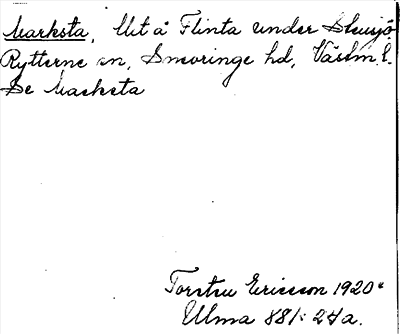 Marksta, Utå Flinta under Stensjö
Rytterne sn, Snevringe hd, Västm. l.
Se Macksta
Torsten Ericsson 1920.
Ulma 881: 24a.